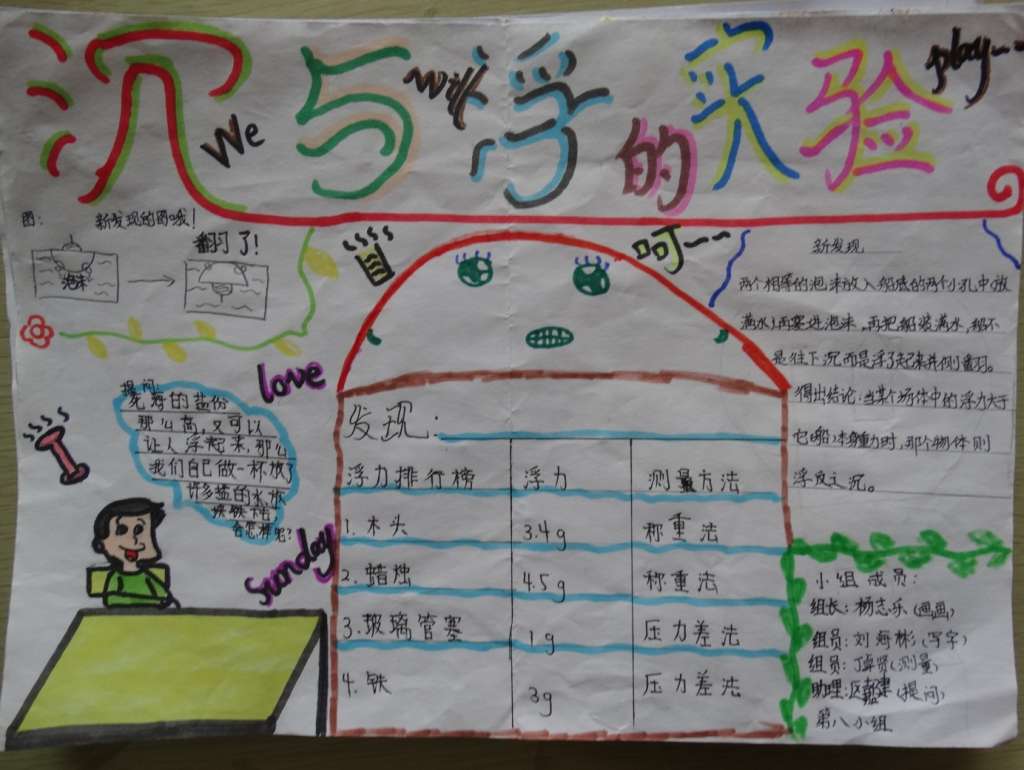 沉与浮的实验
We
will
play...
图: 新发现的图哦!
翻了!
泡沫
呵~~
新发现
两个相等的泡沫放入船底的两个小孔中(放
满水)再塞进泡沫,再把船装满水,船不
是往下沉而是浮了起来并侧翻。
得出结论:当某个物体中的浮力大于
它 重力时,那个物体则
浮反之沉。
love
Sunday
提问:
死海的盐份
那么高,又可以
让人浮起来,那么
我们自己做一杯放了
许多盐的水放
块铁 
会怎样呢?
发现:
浮力排行榜 浮力 测量方法
1. 木头 3.4g 称重法
2. 蜡烛 4.5g 称重法
3. 玻璃管塞 1g 压力差法
4. 铁 3g 压力差法
小组成员:
组长: 杨志乐(画画)
组员: 刘海彬(写字)
组员: (测量)
助理: (提问)
第八小组